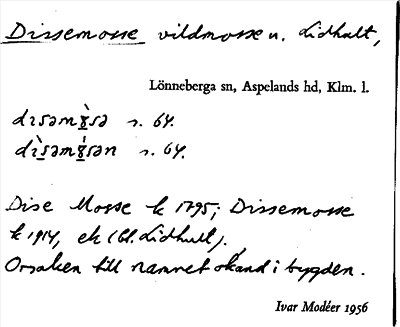 Dissemosse vildmosse n. Lidhult,
Lönneberga sn, Aspelands hd, Klm. l.
s. 64.
s. 64.
Dise Mosse k 1795; Dissemosse
k 1914, ek (bl. Lidhult).
Orsaken till namnet okänd i bygden.
Ivar Modéer 1956